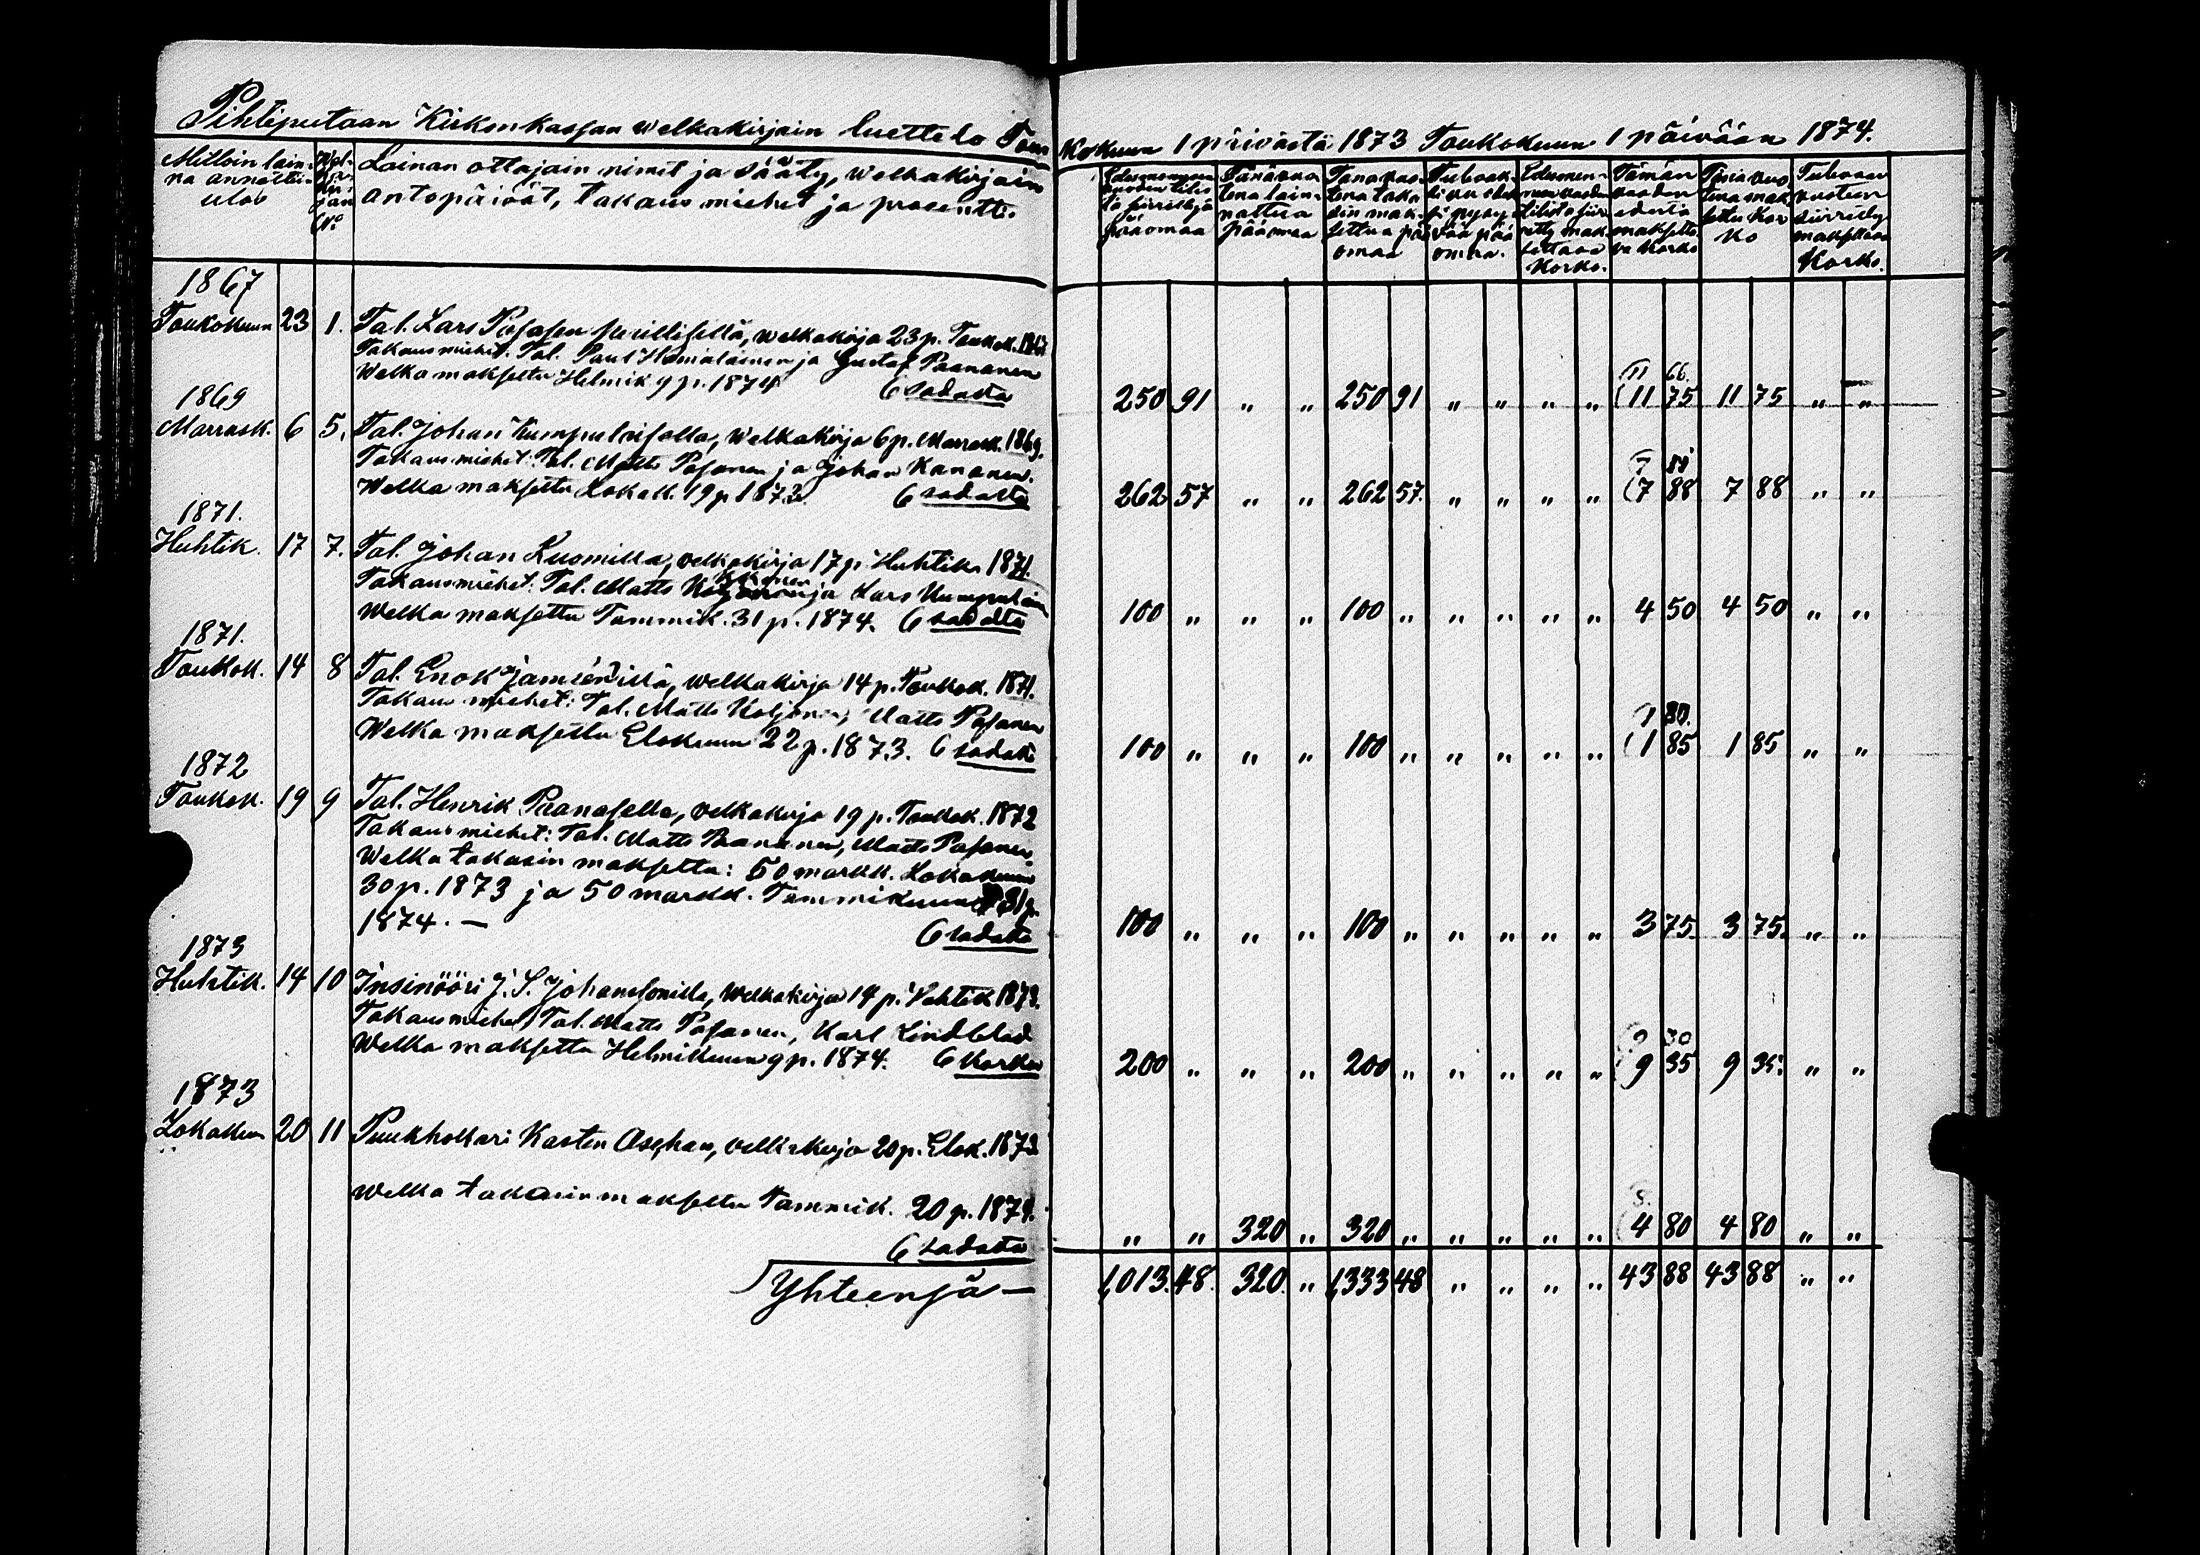 Pihtiputaan Kirkonkassan welkakirjain luettelo Toukokuun 1 päivästä 1873 Toukokuun 1 päivään 1874.
Milloin lai-
na annettiin
ulos
Wel-
ka
kir-
jan
No
Lainan ottajain nimet ja sääty, Welkakirjain
antopäivät, takausmiehet ja prosentti.
pääomaa
Tänä vuo-
tena lain-
nattua
pääomaa
Tänä vuo-
tena taka
sin mak-
settua pä
omaa
omaa.
Korko.
Tämän
vuoden
edestä
maksetta-
va korko
Tänä vuo
tena mak
settu Kor
ko
Tulevaan
vuoteen
siirretty
maksettava
Korko.
1867
Toukokuun 23 1. Tal. Lars Posasen welkakirja 23 p. Toukok. 1867
Takausmiehet. Tal. Paul Hämäläinen ja Gustaf Paananen
Welka maksettu Helmik 9 p. 1874 6 sadasta
11 66.
250 91 „ „ 250 91 „ „ „ „ (11 75 11 75 „ „
1869
Marrask. 6 5. Tal. Johan Kumpulaisella, Welkakirja 6 p. Marrask. 1869.
Takausmiehet. Tal. Matts Posanen ja Johan Kananen.
Welka maksettu Lokak. 19 p 1873. 6 sadasta
262 57 „ „ 262 57. „ „ „ „ (7 88 7 88 „ „
1871.
Huhtik. 17 7. Tal. Johan Kuomilla, velkakirja 17 p. Huhtik 1871.
Takausmiehet. Tal. Matts ja Lars Kumpulain
Welka maksettu Tammik. 31 p. 1874. 6 sadasta
100 „ „ „ 100 „ „ „ „ „ 4 50 4 50 „ „
1871.
Toukok. 14 8 Tal. Enok Jamsénillä, welkakirja 14 p. Toukok. 1871.
Takausmiehet: Tal. Matts Koljonen, Matts Posanen
Welka maksettu Elokuun 22 p. 1873. 6 sadasta
1 80.
100 „ „ „ 100 „ „ „ „ „ (1 85 1 85 „ „
1872
Toukok. 19 9 Tal. Henrik Paanasella, velkakirja 19 p. Toukok. 1872
Takausmiehet: Tal. Matts Paananen, Matts Posanen.
Welka takasin maksettu: 50 markk. Lokakuun
30 p. 1873 ja 50 markk. Tammikuun 31 p.
1874. — 6 sadasta
100 „ „ „ 100 „ „ „ „ „ 3 75. 3 75. „ „
1873
Huhtik. 14 10 Insinööri J. S. Johanssonilla, Welkakirja 14 p. Huhtik 1873.
Takausmiehet, Tal. Matts Posanen, Karl Lindblad
Welka maksettu Helmikuun 9 p. 1874. 6 Korko
9 30
200 „ „ „ 200 „ „ „ „ „ (9 35 9 35. „ „
1873
Lokakuun 20 11 Puukhollari Karsten Asehan, velkakirja 20 p. Elok. 1873
Welka takasin maksettu Tammik. 20 p. 1874.
6 sadasta
„ „ 320 „ 320 „ „ „ „ „ (4 80 4 80 „ „
Yhteensä —
1,013. 48. 320. „ 1,333 48 „ „ „ „ 43 88 43 88 „ „